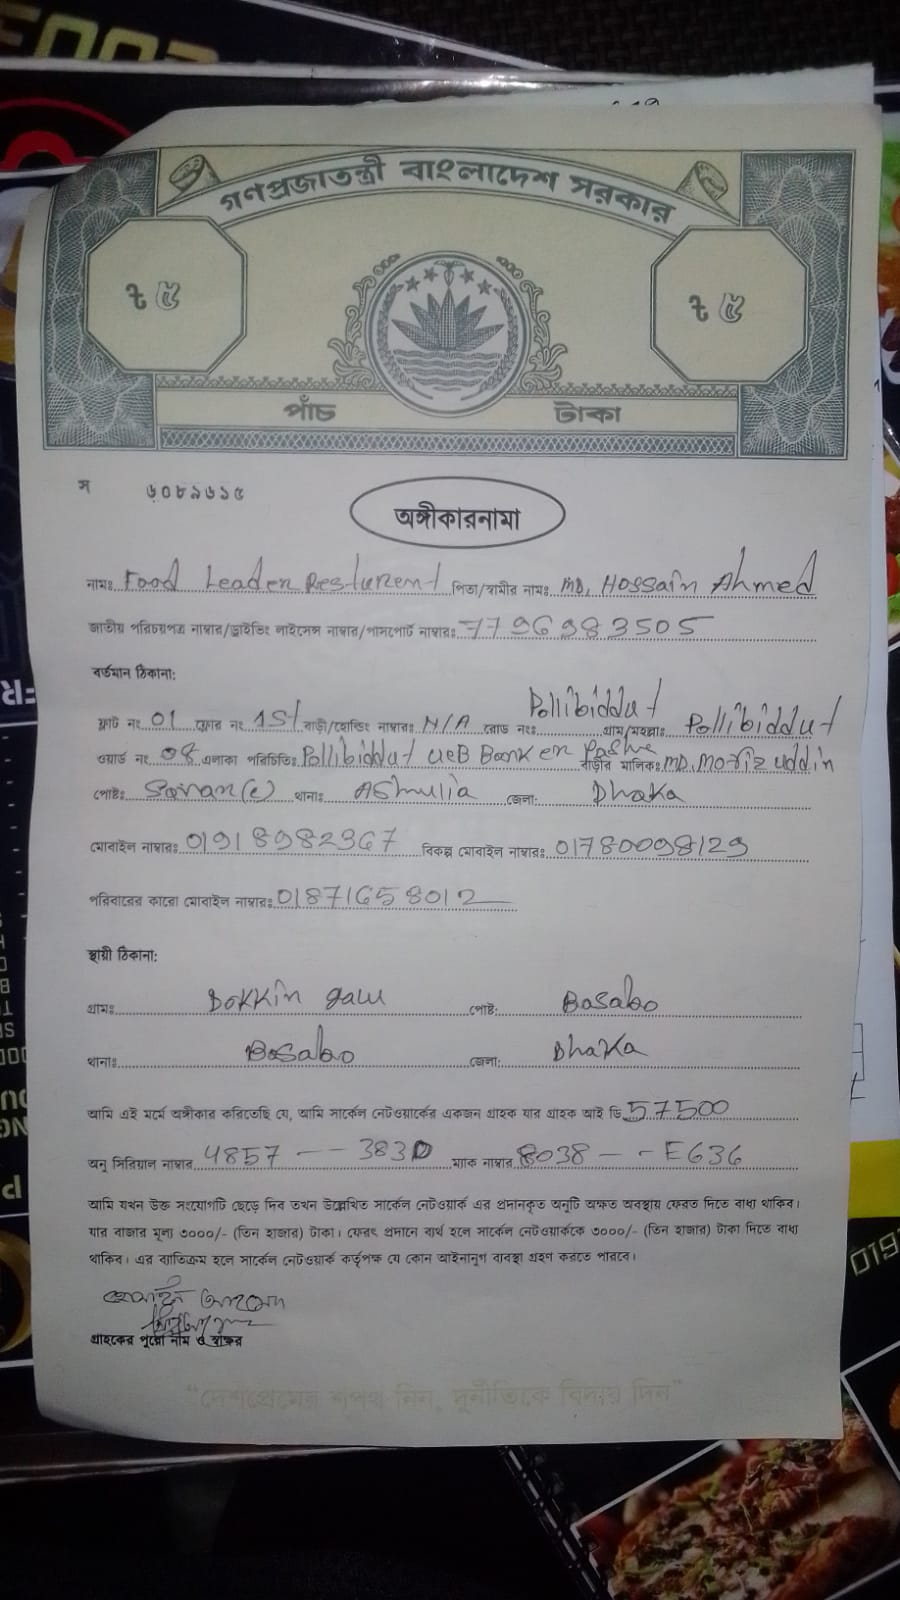 গণপ্রজাতন্ত্রী বাংলাদেশ সরকার
৳ ৫ ৳ ৫
পাঁচ টাকা
স ৬০৮৯৬১৫
অঙ্গীকারনামা
নামঃ Food Leader Resturent পিতা/স্বামীর নামঃ MD. Hossain Ahmed
জাতীয় পরিচয়পত্র নাম্বার/ড্রাইভিং লাইসেন্স নাম্বার/পাসপোর্ট নাম্বারঃ 7796983505
বর্তমান ঠিকানা:
ফ্লাট নং 01 ফ্লোর নং 1st বাড়ী/হোল্ডিং নাম্বারঃ N/A রোড নংঃ Pollibiddut গ্রাম/মহল্লাঃ Pollibiddut
ওয়ার্ড নং 08 এলাকা পরিচিতিঃ Pollibiddut UCB Bank er Pashe বাড়ীর মালিকঃ MD. Mofiz uddin
পোষ্টঃ থানাঃ Ashulia জেলা: Dhaka
মোবাইল নাম্বারঃ 01918982367 বিকল্প মোবাইল নাম্বারঃ 01780098129
পরিবারের কারো মোবাইল নাম্বারঃ 01871658012
স্থায়ী ঠিকানা:
গ্রামঃ Dokkin gaw পোষ্ট: Basabo
থানাঃ Basabo জেলা: Dhaka
আমি এই মর্মে অঙ্গীকার করিতেছি যে, আমি সার্কেল নেটওয়ার্কের একজন গ্রাহক যার গ্রাহক আই ডি 57500
অনু সিরিয়াল নাম্বার 4857 -- 383D ম্যাক নাম্বার 8038 -- E636
আমি যখন উক্ত সংযোগটি ছেড়ে দিব তখন উল্লেখিত সার্কেল নেটওয়ার্ক এর প্রদানকৃত অনুটি অক্ষত অবস্থায় ফেরত দিতে বাধ্য থাকিব।
যার বাজার মূল্য ৩০০০/- (তিন হাজার) টাকা। ফেরৎ প্রদানে ব্যর্থ হলে সার্কেল নেটওয়ার্ককে ৩০০০/- (তিন হাজার) টাকা দিতে বাধ্য
থাকিব। এর ব্যতিক্রম হলে সার্কেল নেটওয়ার্ক কর্তৃপক্ষ যে কোন আইনানুগ ব্যবস্থা গ্রহণ করতে পারবে।
হোসাইন আহমেদ
গ্রাহকের পুরো নাম ও স্বাক্ষর
"দেশপ্রেমের শপথ নিন, দুর্নীতিকে বিদায় দিন"